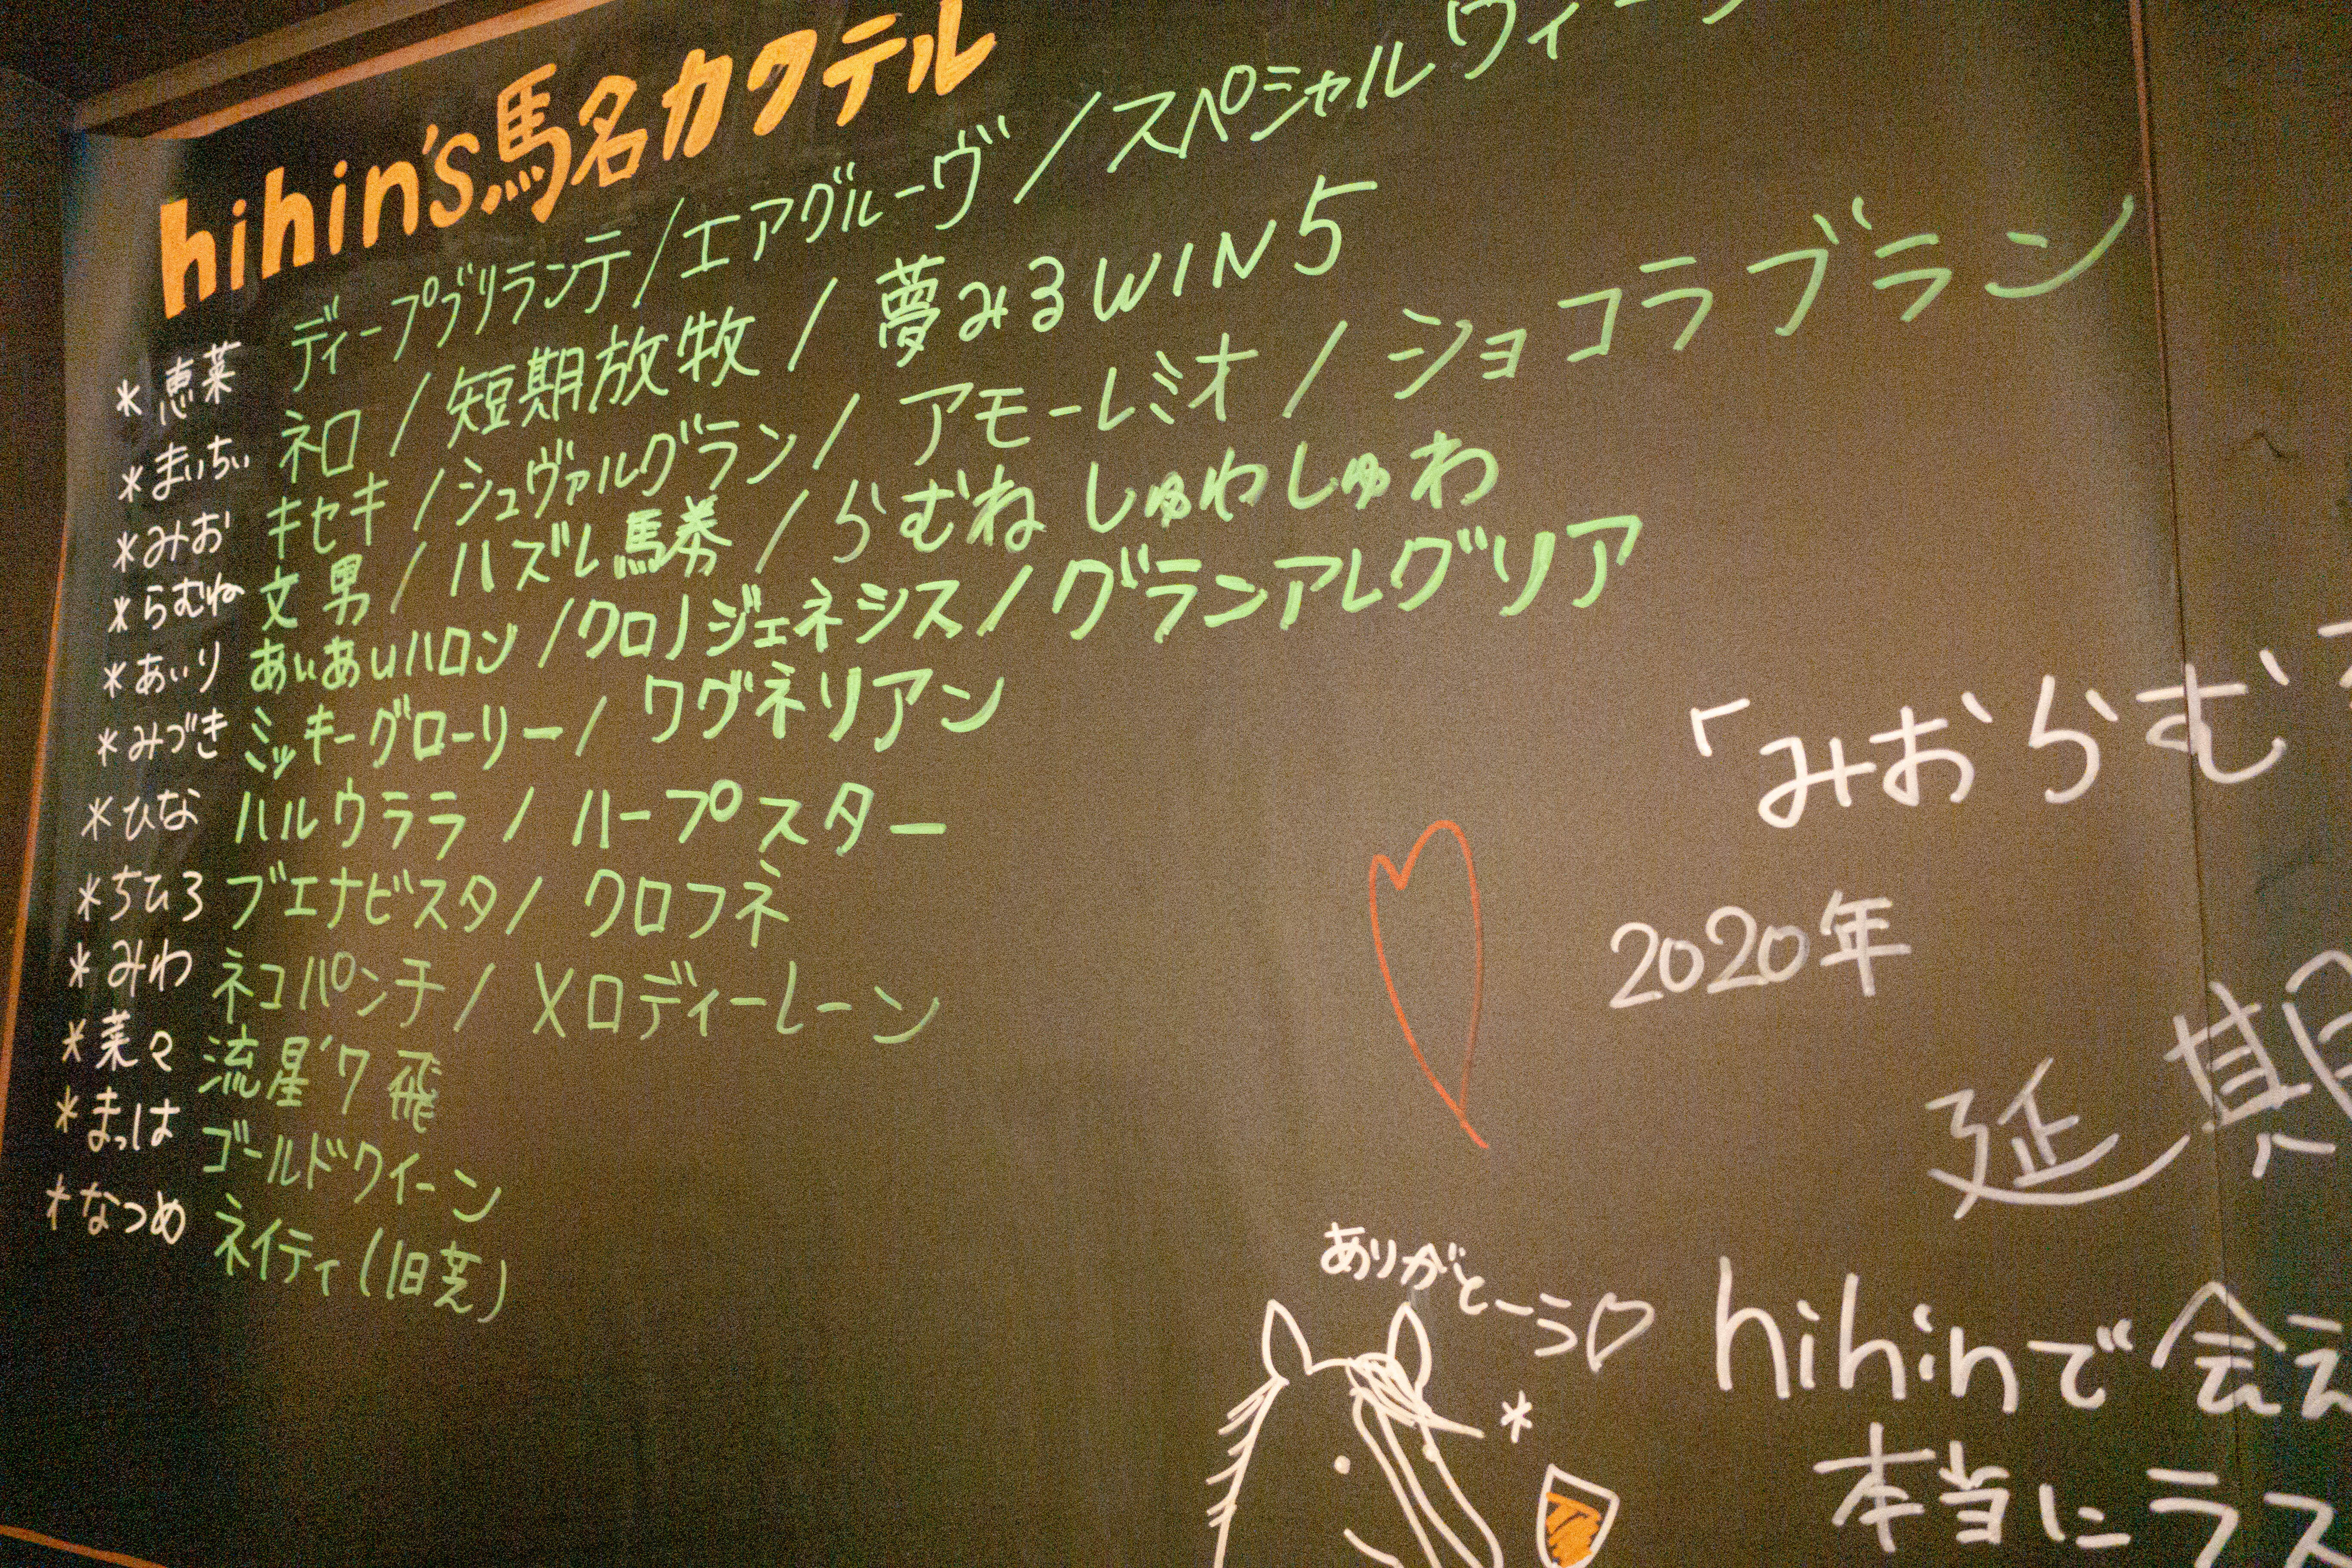 hihin's馬名カクテル
*恵菜 ディープブリランテ/エアグルーヴ/スペシャルウィー
*まいちぃ ネロ/短期放牧/夢みるWIN5
*みお キセキ/シュヴァルグラン/アモーレミオ/ショコラブラン
*らむね 文男/ハズレ馬券/らむねしゅわしゅわ
*あいり あいあいハロン/クロノジェネシス/グランアレグリア
*みづき ミッキーグローリー/ワグネリアン
*ひな ハルウララ/ハープスター
*ちひろ ブエナビスタ/クロフネ
*みわ ネコパンチ/メロディーレーン
*菜々 流星'7飛
*まっは ゴールドクイーン
*なつめ ネイティ(旧芝)
「みおらむ
2020年
延期
ありがとーう♡
hihinで会え
本当にラス